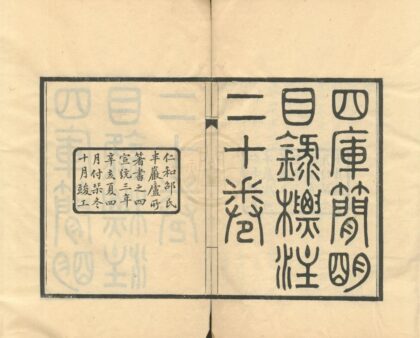 四庫簡明
目錄標注
二十卷
仁和邵氏
半巖廬所
著書之四
宣統三年
辛亥夏四
月付栞冬
十月竣工